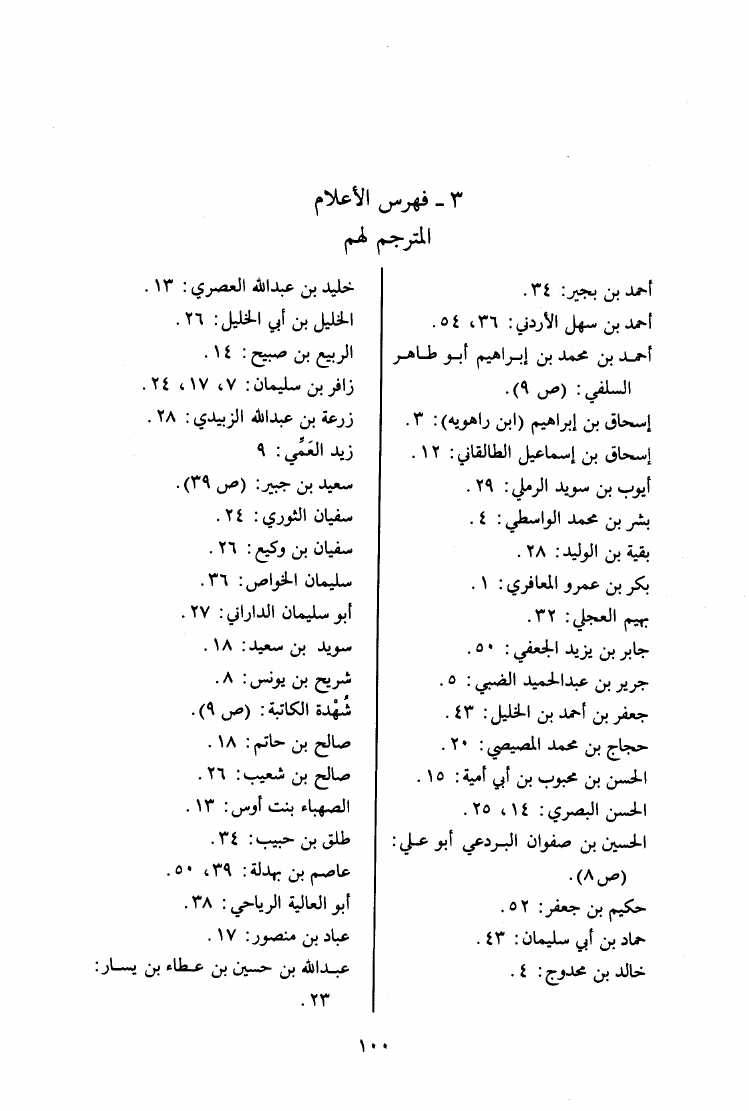 ٣ ـ فهرس الأعلام
المترجم لهم
أحمد بن بجير: ٣٤.
أحمد بن سهل الأردني: ٣٦، ٥٤.
أحمد بن محمد بن إبراهيم أبو طاهر
السلفي: (ص ٩).
إسحاق بن إبراهيم (ابن راهويه): ٣.
إسحاق بن إسماعيل الطالقاني: ١٢.
أيوب بن سويد الرملي: ٢٩.
بشر بن محمد الواسطي: ٤.
بقية بن الوليد: ٢٨.
بكر بن عمرو المعافري: ١.
بهيم العجلي: ٣٢.
جابر بن يزيد الجعفي: ٥٠.
جرير بن عبدالحميد الضبي: ٥.
جعفر بن أحمد بن الخليل: ٤٣.
حجاج بن محمد المصيصي: ٢٠.
الحسن بن محبوب بن أبي أمية: ١٥.
الحسن البصري: ١٤، ٢٥.
الحسين بن صفوان البردعي أبو علي:
(ص ٨).
حكيم بن جعفر: ٥٢.
حماد بن أبي سليمان: ٤٣.
خالد بن محدوج: ٤.
خليد بن عبدالله العصري: ١٣.
الخليل بن أبي الخليل: ٢٦.
الربيع بن صبيح: ١٤.
زافر بن سليمان: ٧، ١٧، ٢٤.
زرعة بن عبدالله الزبيدي: ٢٨.
زيد العَمِّي: ٩
سعيد بن جبير: (ص ٣٩).
سفيان الثوري: ٢٤.
سفيان بن وكيع: ٢٦.
سليمان الخواص: ٣٦.
أبو سليمان الداراني: ٢٧.
سويد بن سعيد: ١٨.
شريح بن يونس: ٨.
شُهْدة الكاتبة: (ص ٩).
صالح بن حاتم: ١٨.
صالح بن شعيب: ٢٦.
الصهباء بنت أوس: ١٣.
طلق بن حبيب: ٣٤.
عاصم بن بهدلة: ٣٩، ٥٠.
أبو العالية الرياحي: ٣٨.
عباد بن منصور: ١٧.
عبدالله بن حسين بن عطاء بن يسار:
٢٣.
١٠٠